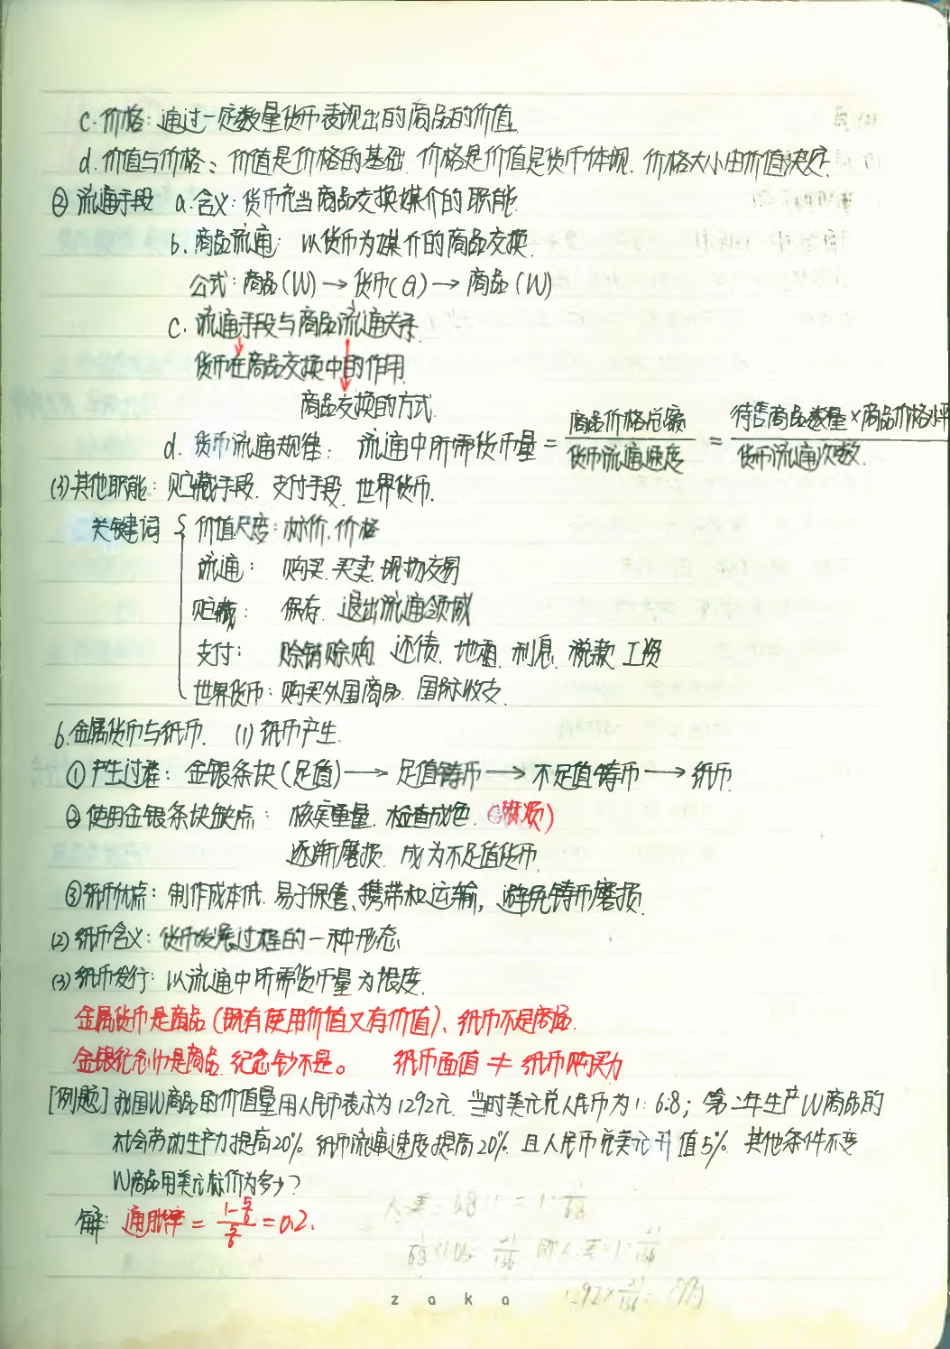 c.价格:通过一定数量货币表现出的商品的价值.
d.价值与价格:价值是价格的基础.价格是价值是货币体现.价格大小由价值决定.
②流通手段 a.含义:货币充当商品交换媒介的职能.
b.商品流通:以货币为媒介的商品交换.
公式:商品(W)→货币(G)→商品(W)
c.流通手段与商品流通关系.
货币在商品交换中的作用.
商品交换的方式.
d.货币流通规律:流通中所需货币量=商品价格总额/货币流通速度=待售商品数量×商品价格水平/货币流通次数.
(3)其他职能:贮藏手段.支付手段.世界货币.
关键词{价值尺度:标价.价格
流通:购买.买卖.现场交易
贮藏:保存.退出流通领域
支付:赊销赊购.还债.地租.利息.税款.工资
世界货币:购买外国商品.国际收支.
6.金属货币与纸币.(1)纸币产生.
①产生过程:金银条块(足值)→足值铸币→不足值铸币→纸币.
②使用金银条块缺点:核实重量.检查成色.(麻烦)
逐渐磨损.成为不足值货币.
③纸币优点:制作成本低.易于保管、携带和运输,避免铸币磨损.
(2)纸币含义:货币发展过程的一种形态.
(3)纸币发行:以流通中所需货币量为限度.
金属货币是商品(既有使用价值又有价值)、纸币不是商品.
金银纪念币是商品.纪念钞不是。 纸币面值≠纸币购买力
[例题]我国W商品的价值量用人民币表示为1292元.当时美元兑人民币为1:6.8;第二年生产W商品的
社会劳动生产力提高20%.纸币流通速度提高20%.且人民币兑美元升值5%.其他条件不变
W商品用美元标价为多少?
解:通胀率=(1-5/6)/(5/6)=0.2.
zaka